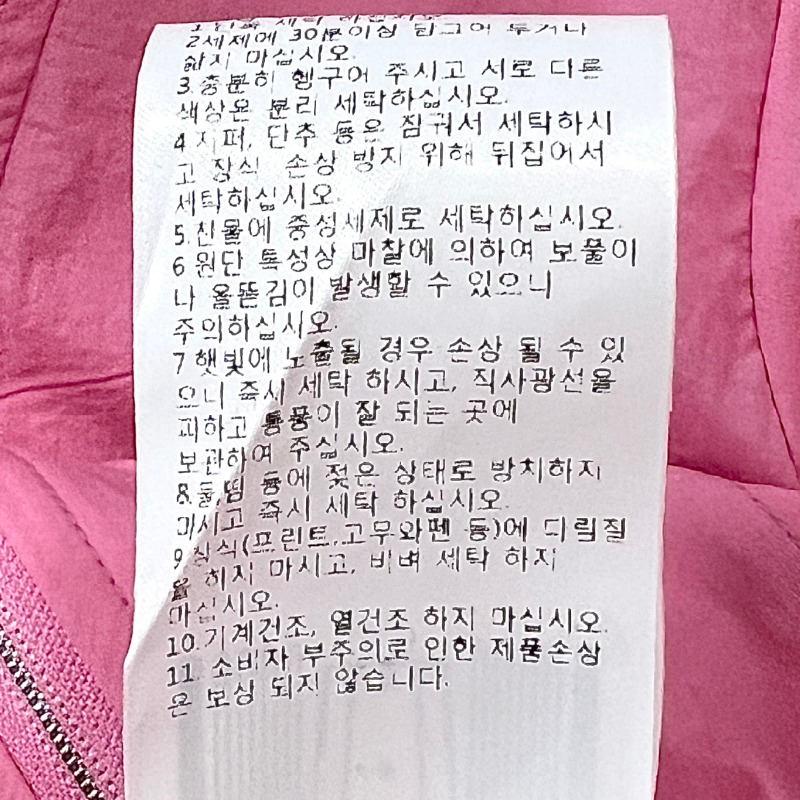 2세제에 30분이상 담그어 두거나
삶지 마십시오.
3.충분히 헹구어 주시고 서로 다른
색상은 분리 세탁하십시오.
4 지퍼, 단추 등은 잠궈서 세탁하시
고 장식 손상 방지 위해 뒤집어서
세탁하십시오.
5.찬물에 중성세제로 세탁하십시오.
6 원단 특성상 마찰에 의하여 보풀이
나 올뜯김이 발생할 수 있으니
주의하십시오.
7 햇빛에 노출될 경우 손상 될 수 있
으니 즉시 세탁 하시고, 직사광선을
피하고 통풍이 잘 되는 곳에
보관하여 주십시오.
8.물,땀 등에 젖은 상태로 방치하지
마시고 즉시 세탁 하십시오.
9.장식(프린트,고무와펜 등)에 다림질
을 하지 마시고, 비벼 세탁 하지
마십시오.
10.기계건조, 열건조 하지 마십시오.
11. 소비자 부주의로 인한 제품손상
은 보상 되지 않습니다.